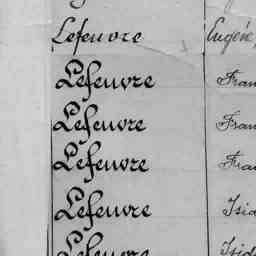 Lefeuvre Eugène
Lefeuvre Fran
Lefeuvre Fran
Lefeuvre Fran
Lefeuvre Isid
Lefeuvre Isid